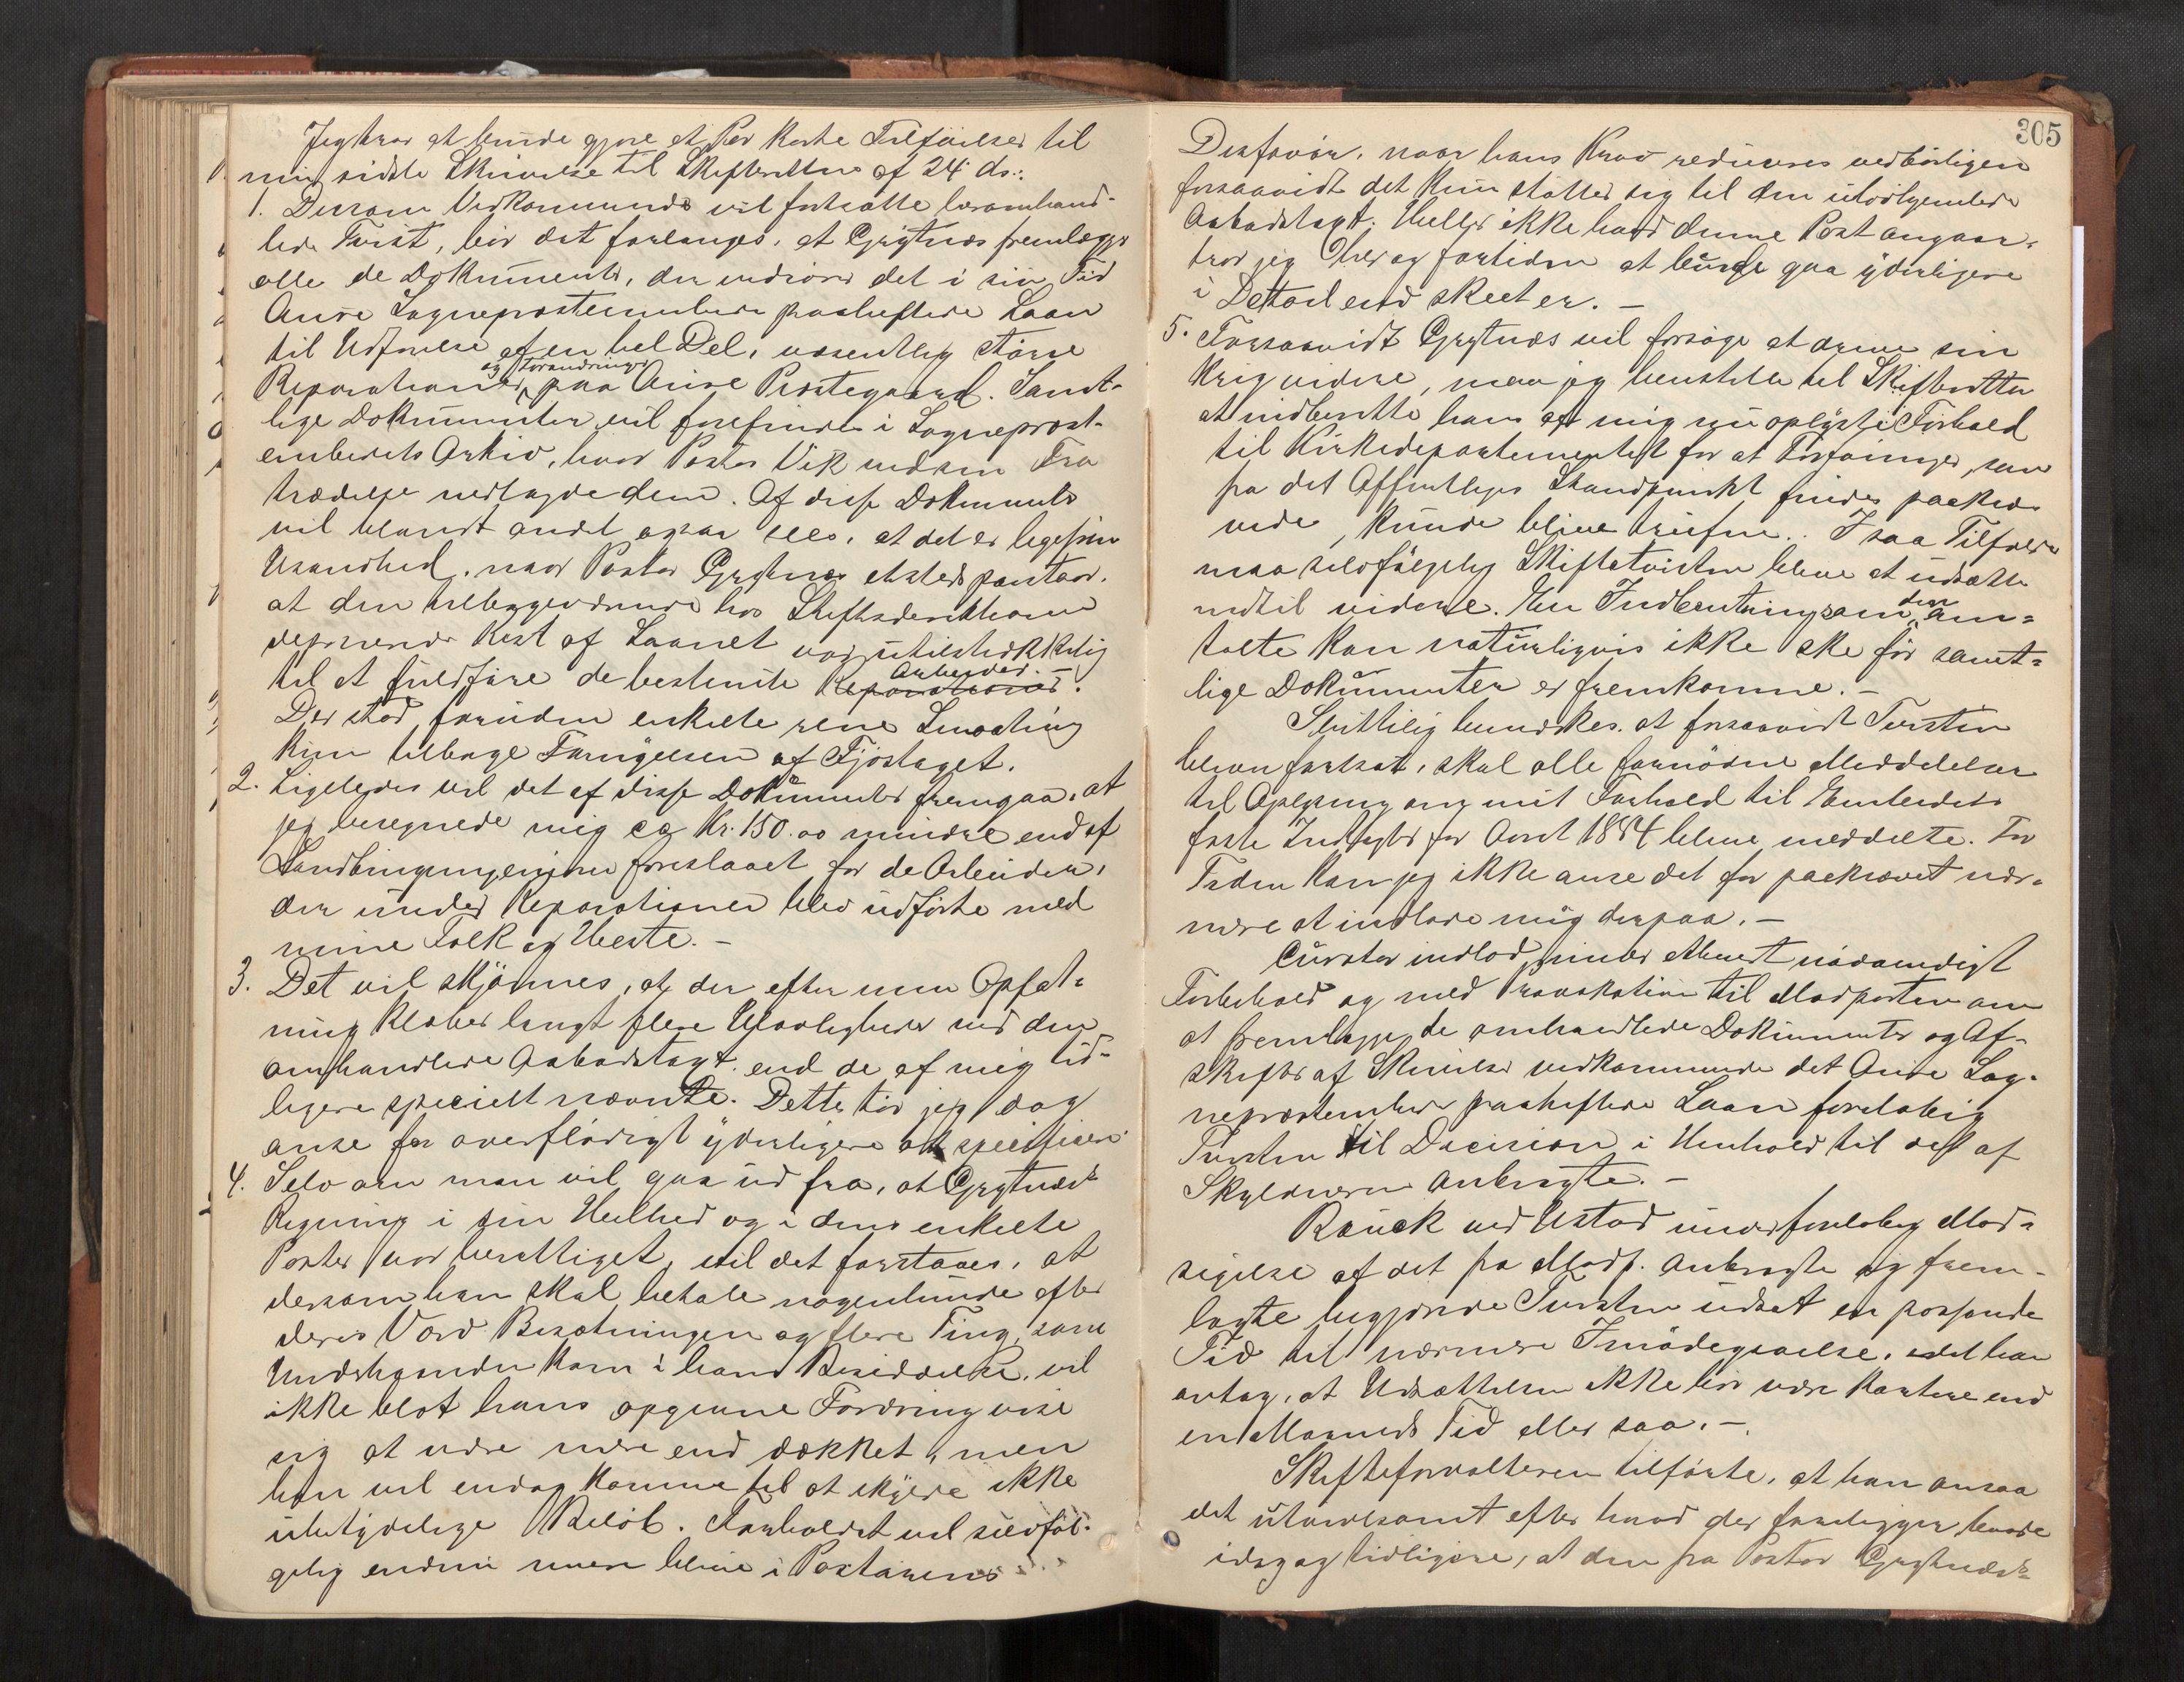 Jeg tror at burde gjøre et Par korte Tilføielser til
min sidste Skrivelse til Skifteretten af 24 ds.:
1. Dersom Vedkommende vil fortsætte heromhand-
lede Tvist, bør det forlanges, at Grytnæs fremlægger
alle de Dokumenter, der vedrører det i sin Tid
Aure Sogneprestembede paaheftede Laan
til Udførelse af en hel Del, væsentlig større
Reparationer og Forandringer paa Aure Prestegaard. Samt-
lige Dokumenter vil forefindes i Sogneprest-
embedets Arkiv, hvor Pastor Vik ved sin Fra
trædelse nedlagde dem. Af disse Dokumenter
vil blandt andet ogsaa sees, at det er ligefrem
Usandhed, naar Pastor Grytnæs etsteds paastaar,
at den tilbageværende hos Stiftsdirektionen
deponerede Rest af Laanet var utilstrækkelig
til at fuldføre de bestemte Reparationer Arbeider.
Der stod foruden enkelte rene Smaating
kun tilbage Fornyelsen af Fjøstaget.
2. Ligeledes vil det af disse Dokumenter fremgaa, at
jeg beregnede mig ca Kr. 150.00 mindre end af
Landbrugsingeniøren foreslaaet for de Arbeider,
der under Reparationen blev udførte med
mine Folk og Heste. –
3. Det vil skjønnes, at der efter min Opfat-
ning klæber langt flere Ulovligheder ved den
omhandlede Aabodstagt. end de af mig tid-
ligere specielt nævnte. Dette tør jeg dog
anse for overflødigt yderligere at specificere.
4. Selv om man vil gaa ud fra, at Grytnæs's
Regning i sin Helhed og i dens enkelte
Poster var berettiget, vil det forstaaes, at
dersom han skal betale nogenlunde efter
deres Værd Besætningen og flere Ting, som
Underhaanden kom i hans Besiddelse, vil
ikke blot hans opgivne Fordring vise
sig at være mere end dækket, men
han vil endog komme til at skylde ikke
ubetydelige Beløb. Forholdet vil selvføl-
gelig endnu mere blive i Pastorens
305
Disfavør, naar hans Krav reduceres vedbørligen
forsaavidt det kun støtter sig til den udvilgemlede
Aabodstagt. Heller ikke hvad denne Post angaar,
tror jeg Her og fortiden at burde gaa yderligere
i Detail end skeet er. –
5. Forsaavidt Grytnæs vil forsøge at drive sin
Krig videre, maa jeg henstille til Skifteretten
at indberette hans af mig nu oplyste Forhold
til Kirkedepartementet for at Forføininger, som
fra det Offentliges Standpunkt findes paakræ-
vede, kunde blive trufne. I saa Tilfælde
maa selvfølgelig Skiftetvisten blive at udsætte
indtil videre. En Indberetning som den om-
talte kan naturligvis ikke ske før samt-
lige Dokumenter er fremkomne. –
Sluttelig bemærkes, at forsaavidt Tvisten
bliver fortsat, skal alle fornødne Meddelelser
til Oplysning om mit Forhold til Embedets
faste Indtægter for Aaret 1884 blive meddelte. For
Tiden kan jeg ikke anse det for paakrævet nær-
mere at indlade mig derpaa. –
Curator indlod under ethvert nødvendigt
Forbehold og med Provokation til Modparten om
at fremlægge de omhandlede Dokumenter og Af-
skrifter af Skrivelser vedkommende det Aure Sog-
neprestembede paaheftede Laan foreløbig
Tvisten til Decision i Henhold til det af
Skyldneren anbragte. –
Rauck ved Ustad under foreløbig Mod-
sigelse af det fra Modp. anbragte og frem-
lagte begjærede Tvisten udsat en passende
Tid til nærmere Imødegaaelse, idet han
antog, at Udsættelsen ikke bør være kortere end
en Maaneds Tid eller saa. –
Skifteforvalteren tilførte, at han ansaa
det utvivlsomt efter hvad der foreligger baade
idag og tidligere, at den fra Pastor Grytnæs's